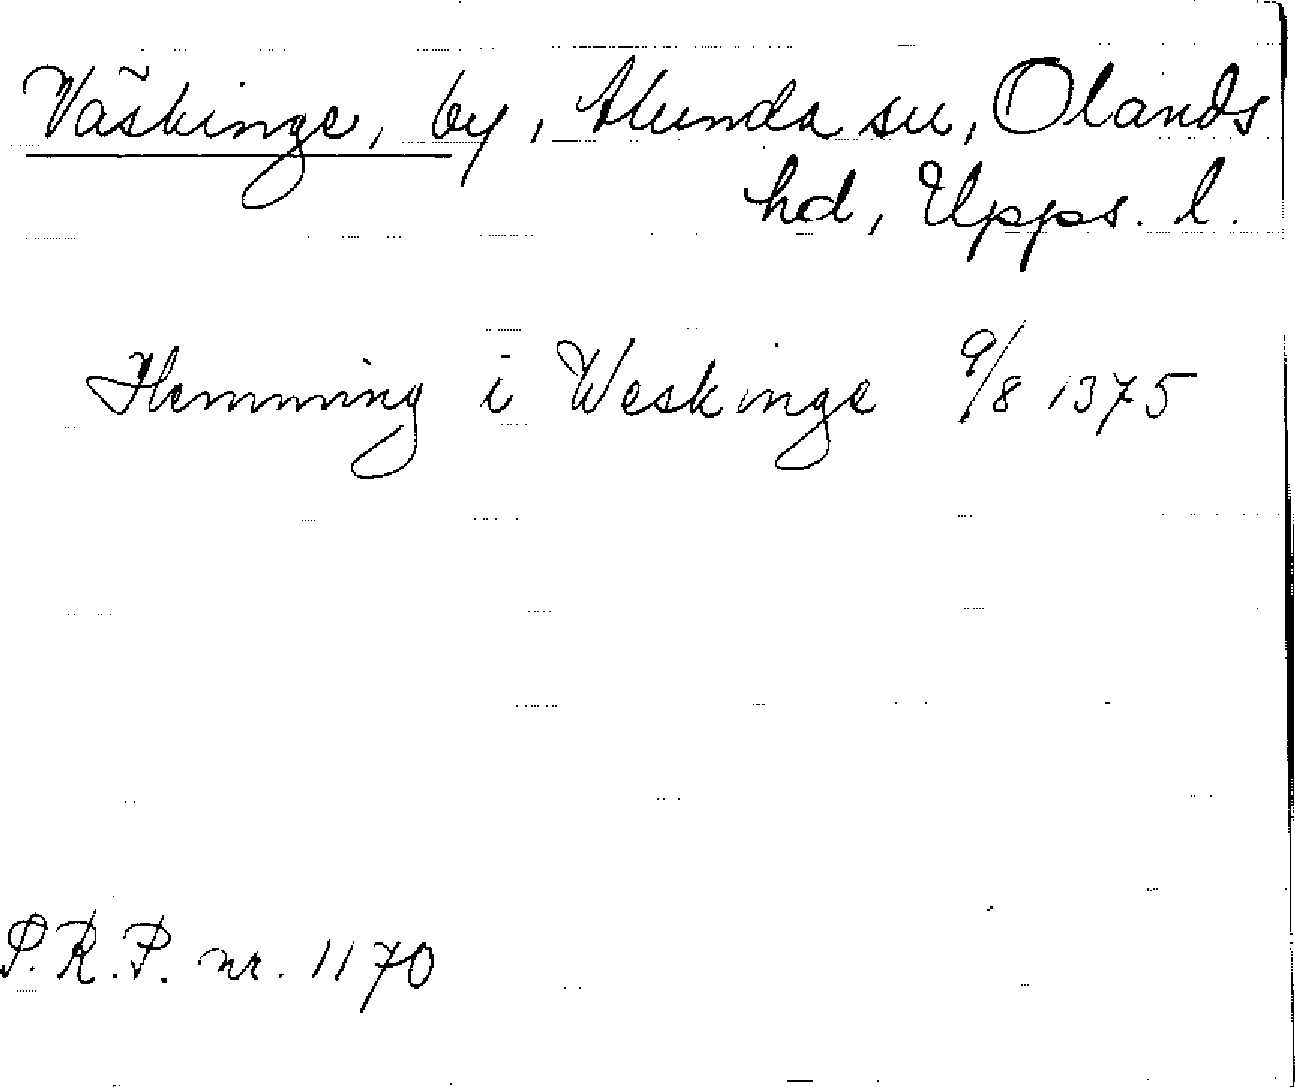 Väskinge, by, Alunda sn, Olands
hd, Upps. l.
Hemming i Weskinge 9/8 1375
S.R.P. nr. 1170